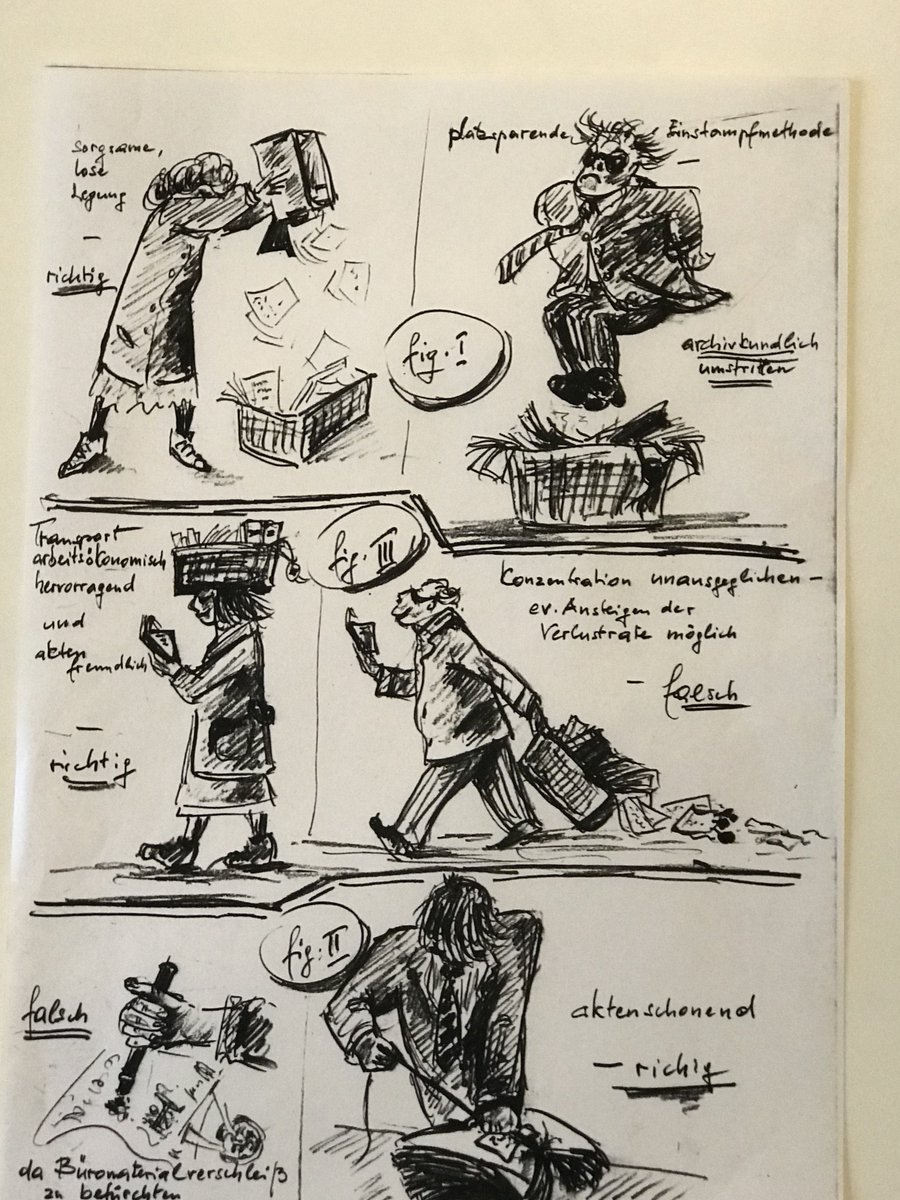 sorgsame,
lose
Legung
—
richtig
platzsparende Einstampfmethode
—
archivkundlich
umstritten
fig. I
Transport
arbeitsökonomisch
hervorragend
und
akten
freundlich
—
richtig
fig. III
Konzentration unausgeglichen —
ev. Ansteigen der
Verlustrate möglich
— falsch
fig. II
falsch
da Büromaterialverschleiß
zu befürchten
aktenschonend
— richig